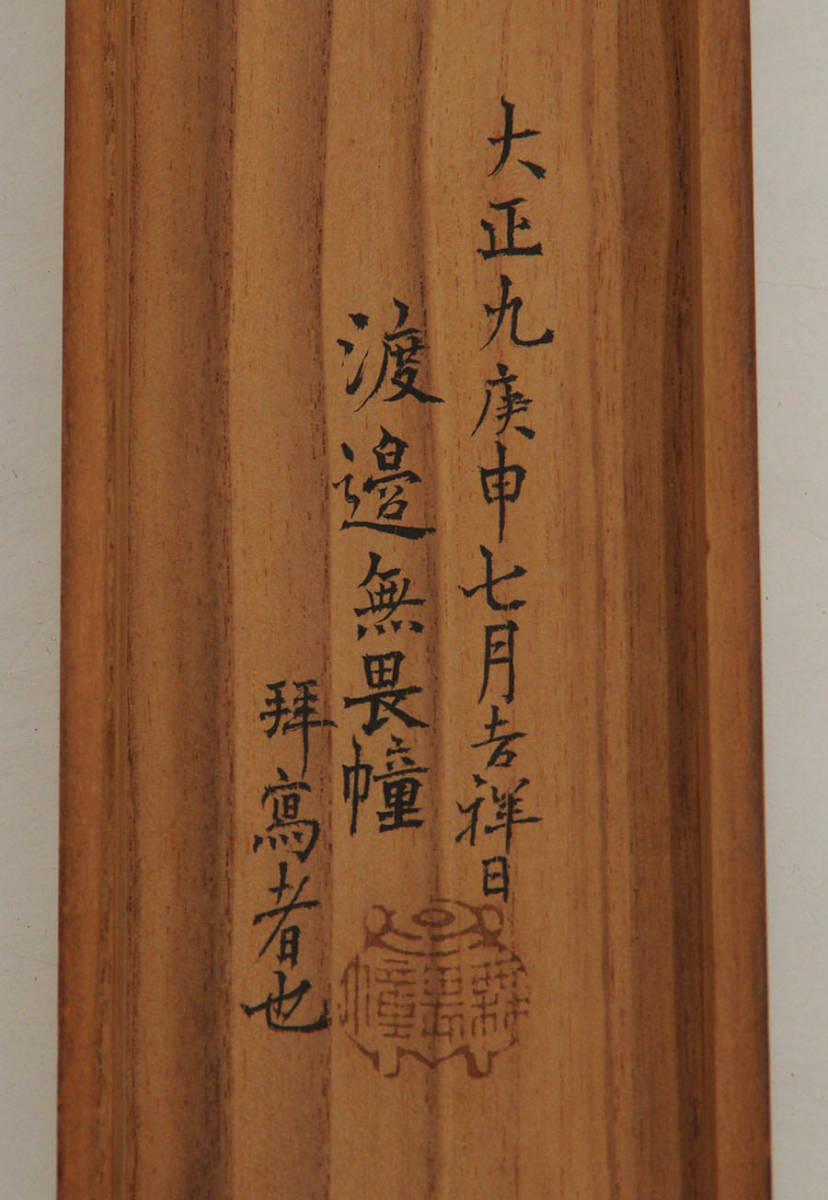 大正九庚申七月吉祥日
渡邉無畏幢
拜寫者也
無畏幢